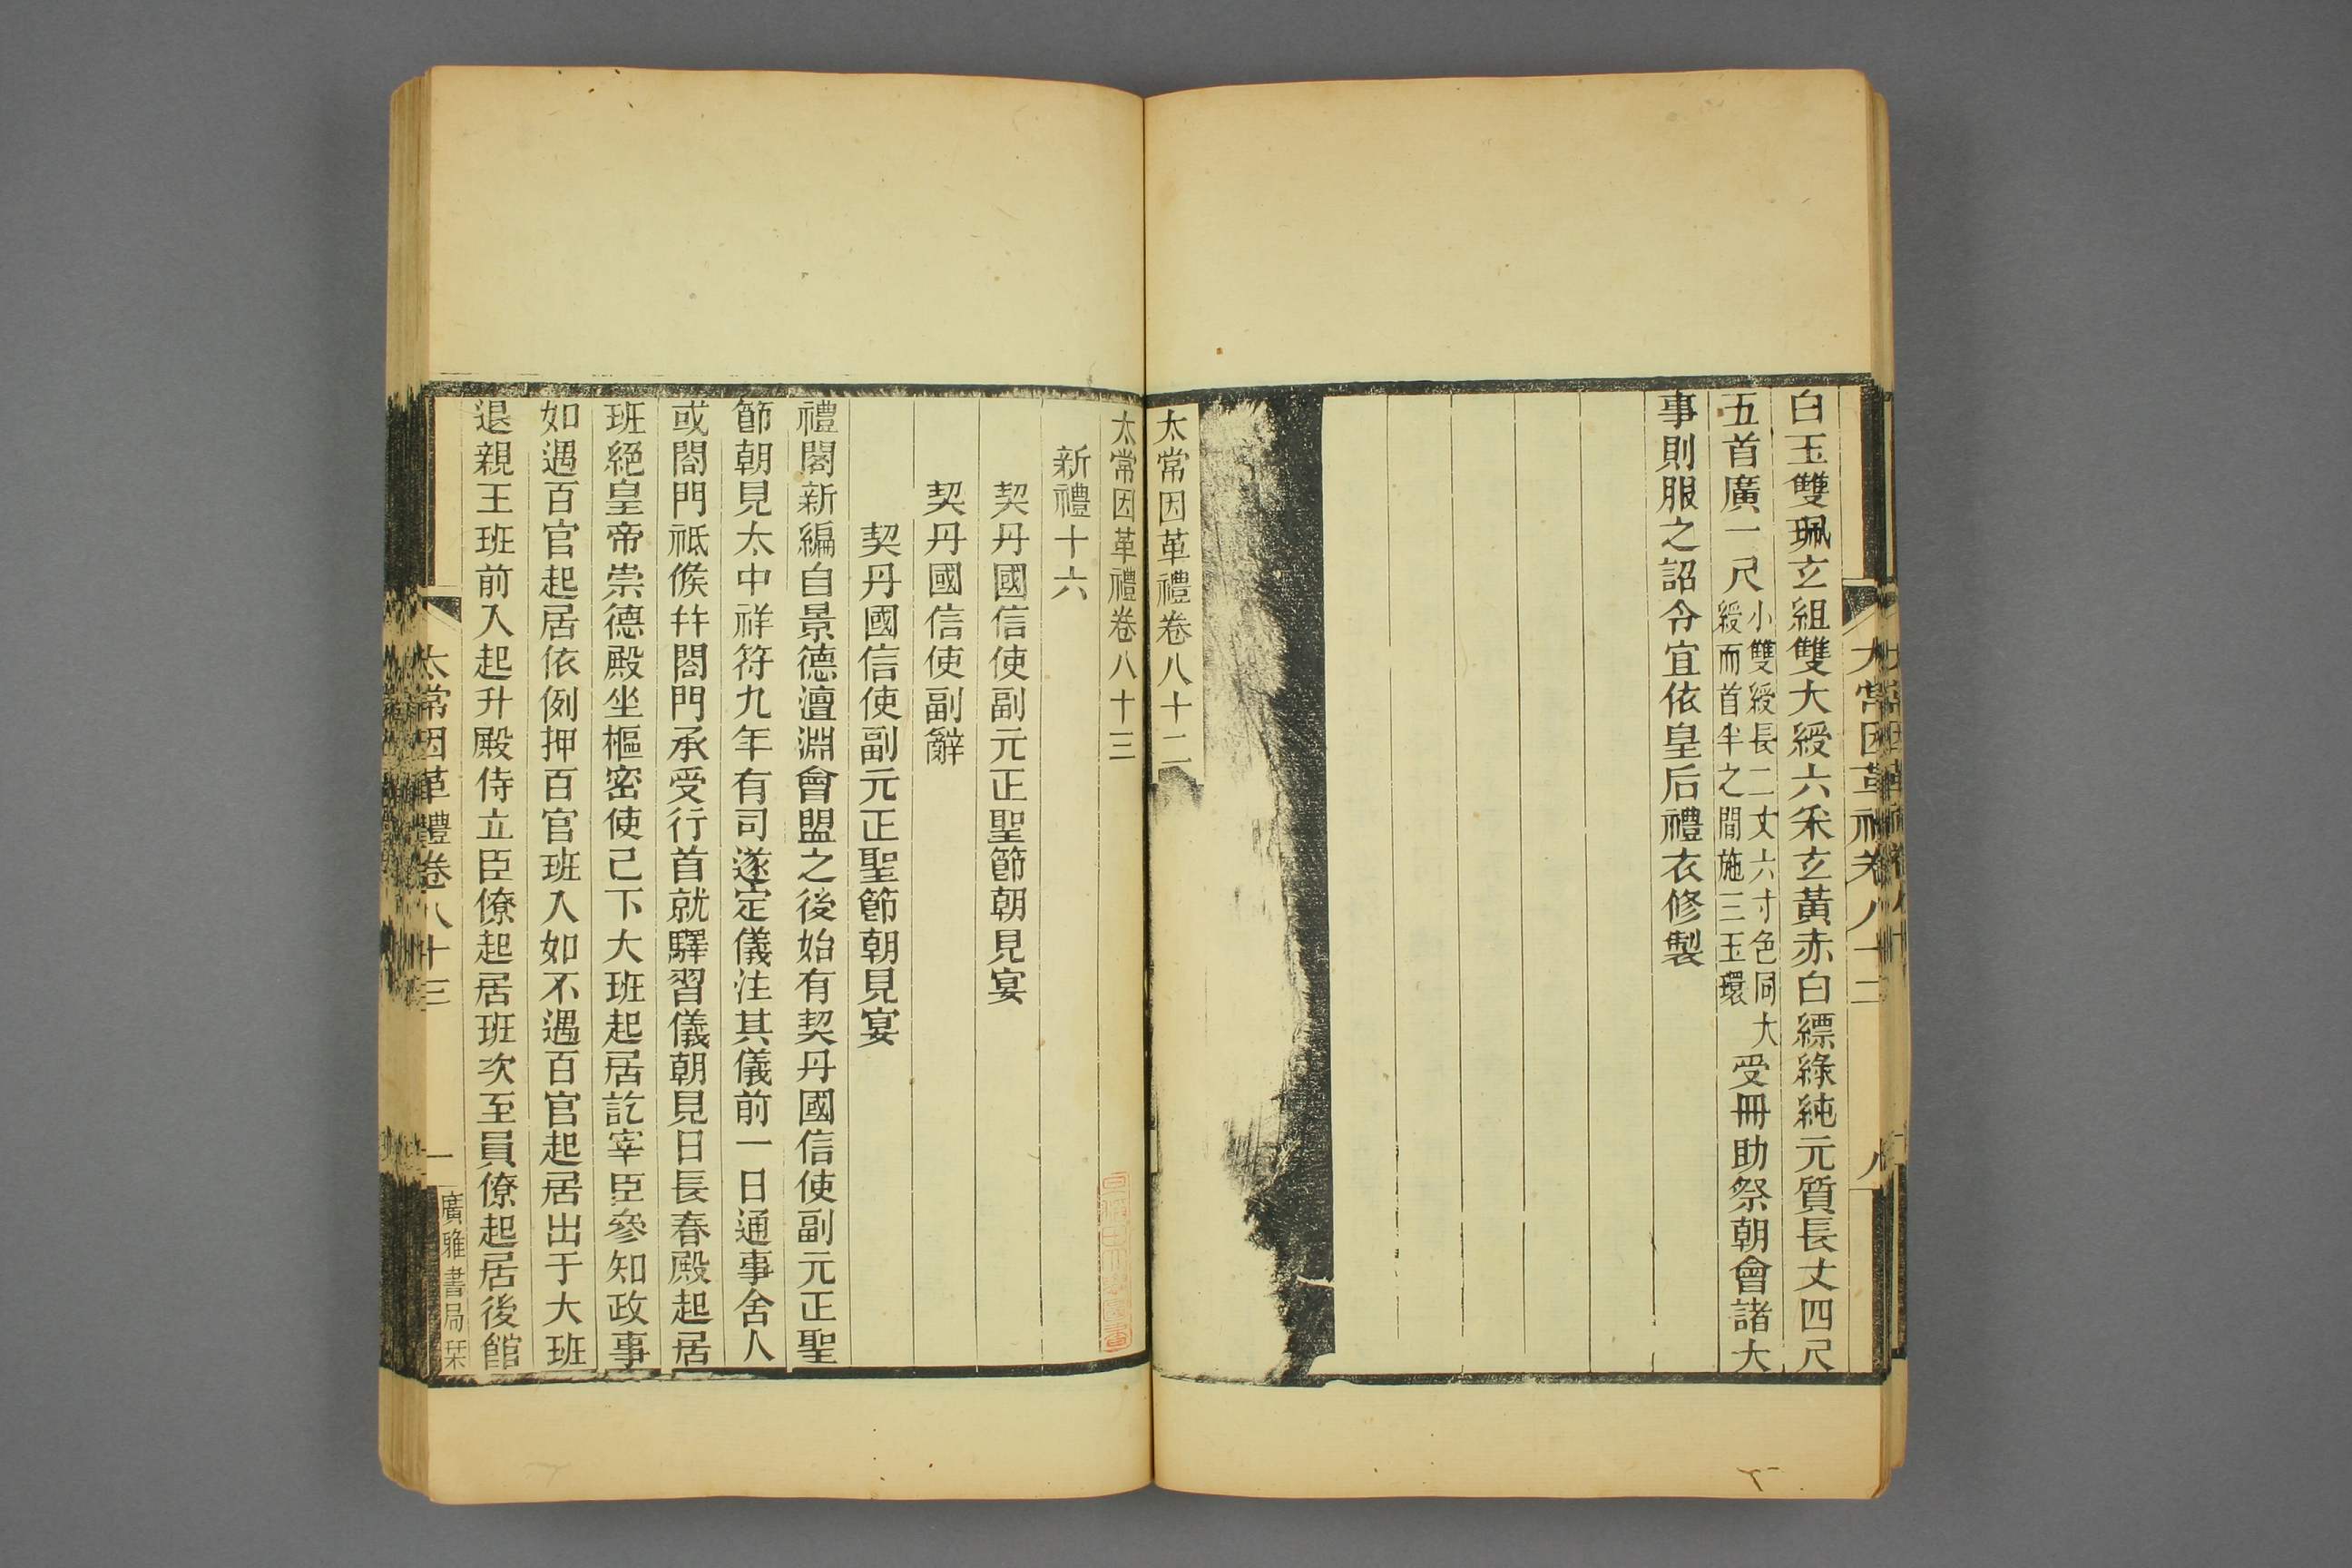 白玉雙珮玄組雙大綬六采玄黃赤白縹綠純元質長丈四尺
五首廣一尺小雙綬長二丈六寸色同大綬而首半之間施三玉環受冊助祭朝會諸大
事則服之詔令宜依皇后禮衣修製
太常因革禮卷八十二
太常因革禮卷八十三
新禮十六
契丹國信使副元正聖節朝見宴
契丹國信使副辭
契丹國信使副元正聖節朝見宴
禮閣新編自景德澶淵會盟之後始有契丹國信使副元正聖
節朝見大中祥符九年有司遂定儀注其儀前一日通事舍人
或閤門祗候幷閤門承受行首就驛習儀朝見日長春殿起居
班絕皇帝崇德殿坐樞密使已下大班起居訖宰臣參知政事
如遇百官起居依例押百官班入如不遇百官起居出于大班
退親王班前入起升殿侍立臣僚起居班次至員僚起居後館
太常因革禮卷八十三
一
廣雅書局栞